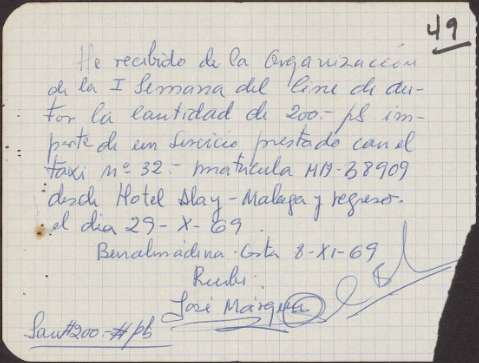 49
He recibido de la Organización
de la I Semana del Cine de Au-
tor la cantidad de 200.- pts im-
porte de un Servicio prestado con el
taxi nº 32.- matricula MA-38909
desde Hotel Alay - Malaga y regreso.
el dia 29-X-69.
Benalmádena-Costa 8-XI-69
Recibi:
José Márquez
Son #200.-# pts